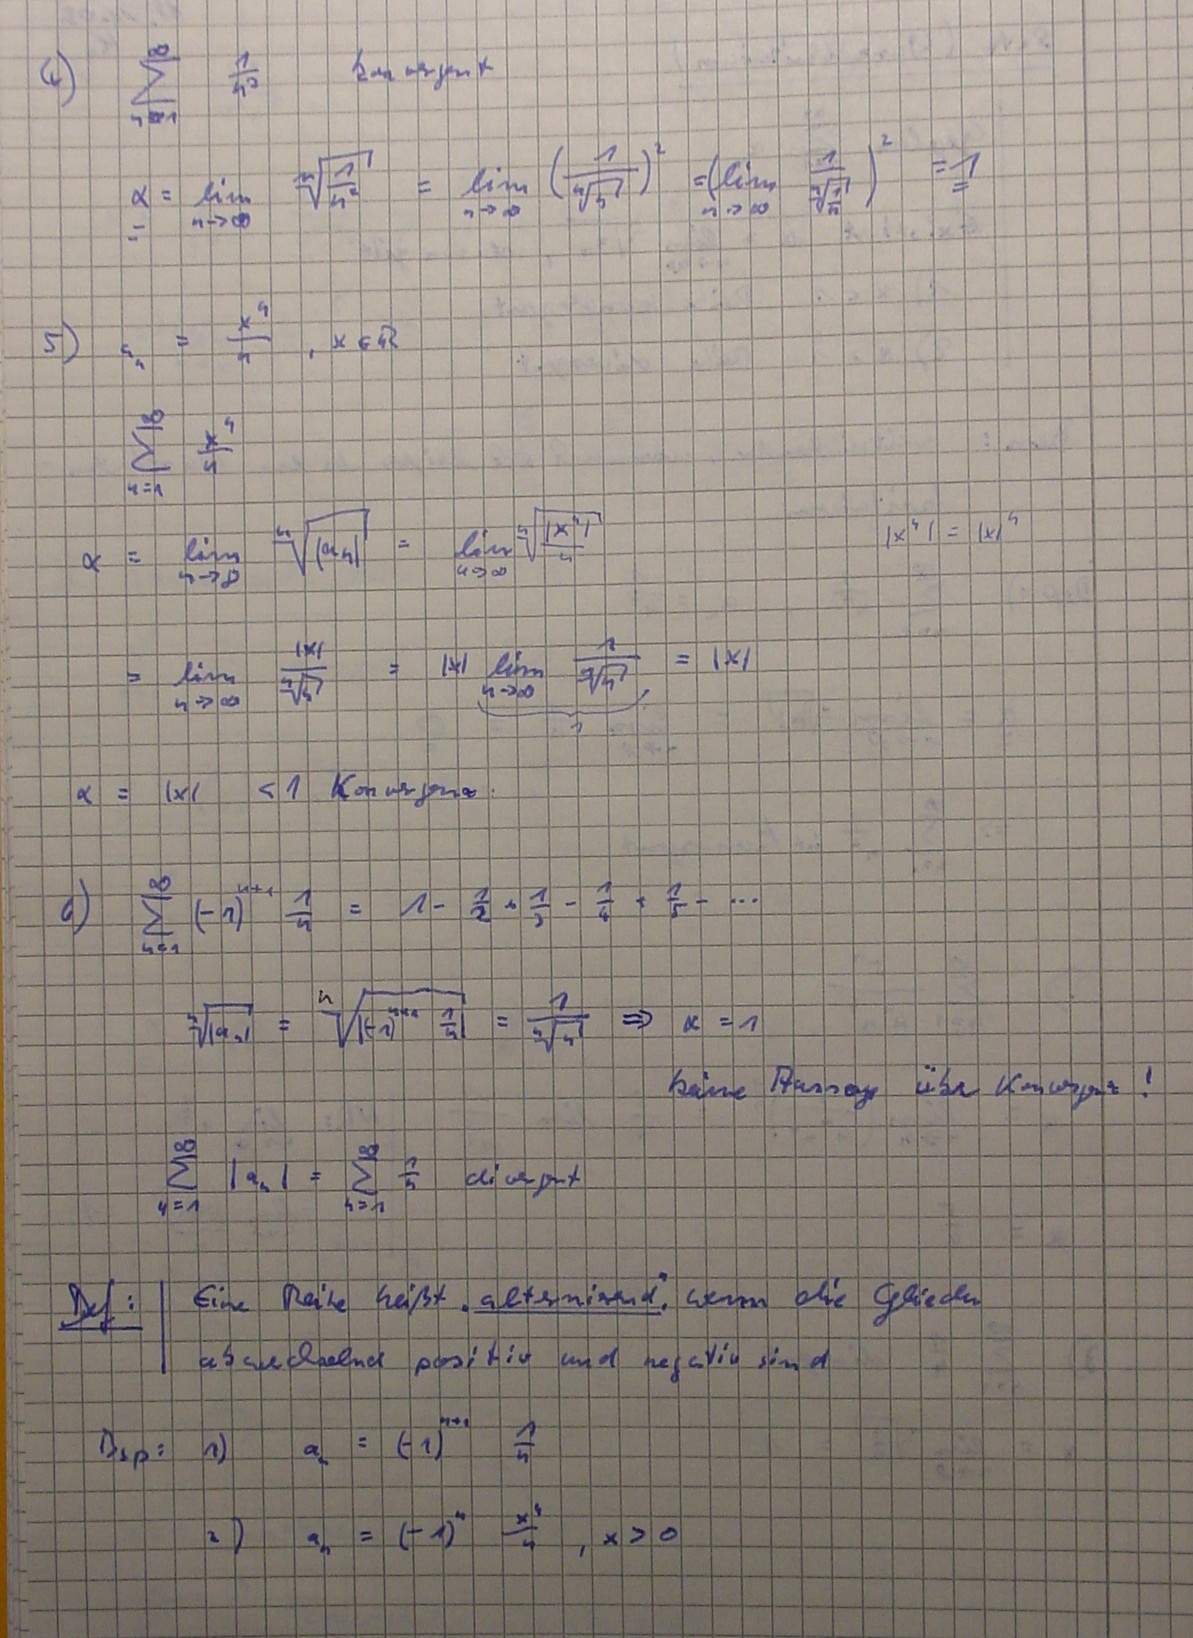 4) ∑_{n=1}^{∞} 1/n² konvergent
α = lim_{n→∞} ⁿ√(1/n²) = lim_{n→∞} (1/ⁿ√n)² = (lim_{n→∞} 1/ⁿ√n)² = 1
5) a_n = xⁿ/n , x ∈ ℝ
∑_{n=1}^{∞} xⁿ/n
α = lim_{n→∞} ⁿ√|a_n| = lim_{n→∞} ⁿ√(|xⁿ|/n) |xⁿ| = |x|ⁿ
= lim_{n→∞} |x|/ⁿ√n = |x| lim_{n→∞} 1/ⁿ√n = |x|
1
α = |x| < 1 Konvergenz.
6) ∑_{n=1}^{∞} (-1)^{n+1} 1/n = 1 - 1/2 + 1/3 - 1/4 + 1/5 - ...
ⁿ√|a_n| = ⁿ√|(-1)^{n+1} 1/n| = 1/ⁿ√n ⇒ α = 1
keine Aussage über Konvergenz!
∑_{n=1}^{∞} |a_n| = ∑_{n=1}^{∞} 1/n divergent
Def: Eine Reihe heißt „alternierend", wenn die Glieder
abwechselnd positiv und negativ sind
Bsp: 1) a_n = (-1)^{n+1} 1/n
2) a_n = (-1)ⁿ xⁿ/n , x > 0